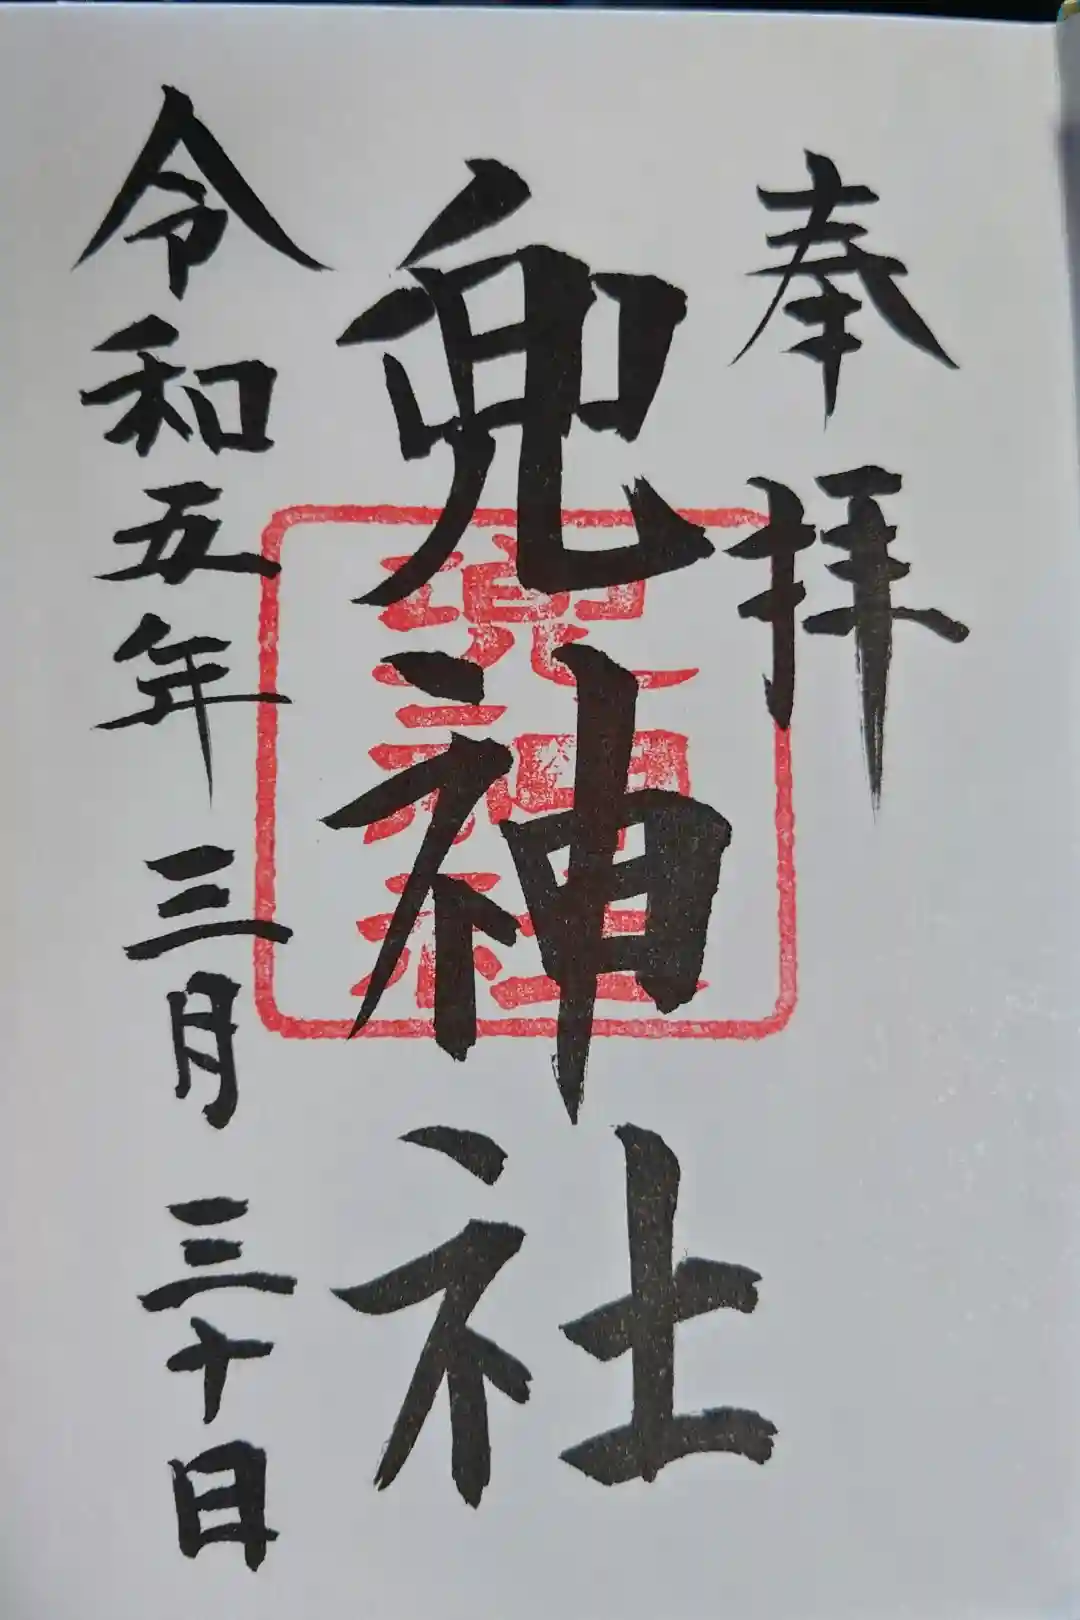 奉拝
兜神社
兜神社
令和五年三月三十日